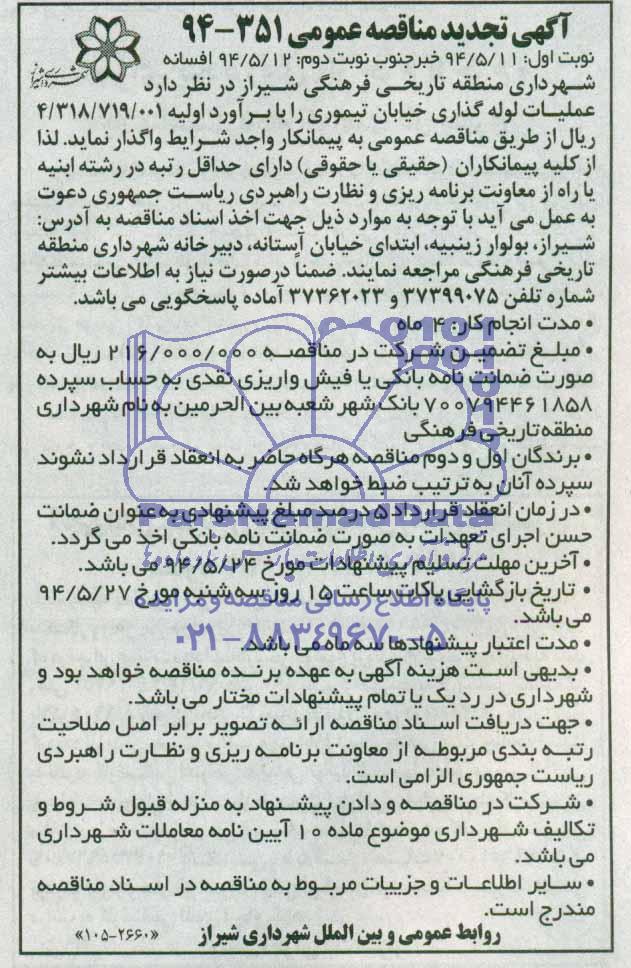 آگهی تجدید مناقصه عمومی ۳۵۱-۹۴
نوبت اول: ۹۴/۵/۱۱ خبرجنوب نوبت دوم: ۹۴/۵/۱۲ افسانه
شهرداری شیراز
شهرداری منطقه تاریخی فرهنگی شیراز در نظر دارد
عملیات لوله گذاری خیابان تیموری را با برآورد اولیه ۴/۳۱۸/۷۱۹/۰۰۱
ریال از طریق مناقصه عمومی به پیمانکار واجد شرایط واگذار نماید. لذا
از کلیه پیمانکاران (حقیقی یا حقوقی) دارای حداقل رتبه در رشته ابنیه
یا راه از معاونت برنامه ریزی و نظارت راهبردی ریاست جمهوری دعوت
به عمل می آید با توجه به موارد ذیل جهت اخذ اسناد مناقصه به آدرس:
شیراز، بولوار زینبیه، ابتدای خیابان آستانه، دبیرخانه شهرداری منطقه
تاریخی فرهنگی مراجعه نمایند. ضمناً درصورت نیاز به اطلاعات بیشتر
شماره تلفن ۳۷۳۹۹۰۷۵ و ۳۷۳۶۲۰۲۳ آماده پاسخگویی می باشد.
• مدت انجام کار: ۴ ماه
• مبلغ تضمین شرکت در مناقصه ۲۱۶/۰۰۰/۰۰۰ ریال به
صورت ضمانت نامه بانکی یا فیش واریزی نقدی به حساب سپرده
۷۰۰۷۹۴۴۶۱۸۵۸ بانک شهر شعبه بین الحرمین به نام شهرداری
منطقه تاریخی فرهنگی
• برندگان اول و دوم مناقصه هرگاه حاضر به انعقاد قرارداد نشوند
سپرده آنان به ترتیب ضبط خواهد شد.
• در زمان انعقاد قرارداد ۵ درصد مبلغ پیشنهادی به عنوان ضمانت
حسن اجرای تعهدات به صورت ضمانت نامه بانکی اخذ می گردد.
• آخرین مهلت تسلیم پیشنهادات مورخ ۹۴/۵/۲۴ می باشد.
• تاریخ بازگشایی پاکات ساعت ۱۵ روز سه شنبه مورخ ۹۴/۵/۲۷
می باشد.
• مدت اعتبار پیشنهادها سه ماه می باشد.
• بدیهی است هزینه آگهی به عهده برنده مناقصه خواهد بود و
شهرداری در رد یک یا تمام پیشنهادات مختار می باشد.
• جهت دریافت اسناد مناقصه ارائه تصویر برابر اصل صلاحیت
رتبه بندی مربوطه از معاونت برنامه ریزی و نظارت راهبردی
ریاست جمهوری الزامی است.
• شرکت در مناقصه و دادن پیشنهاد به منزله قبول شروط و
تکالیف شهرداری موضوع ماده ۱۰ آیین نامه معاملات شهرداری
می باشد.
• سایر اطلاعات و جزییات مربوط به مناقصه در اسناد مناقصه
مندرج است.
روابط عمومی و بین الملل شهرداری شیراز «۲۶۶۰-۱۰۵»
ParsNamadData
پایگاه اطلاع رسانی مناقصه و مزایده
۰۲۱-۸۸۳۴۹۶۷۰-۵